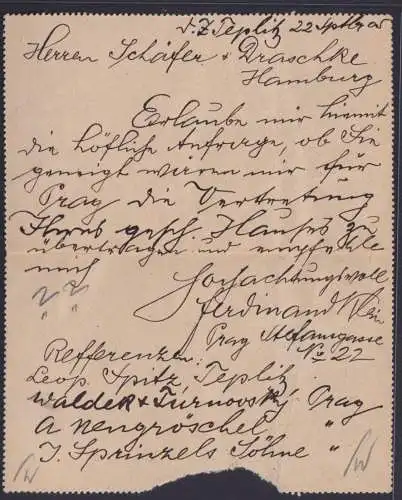 d. Z. Teplitz 22 Sptbr 05
Herren Schäfer & Draschke
Hamburg
Erlaube mir hiemit
die höfliche Anfrage, ob Sie
geneigt wären mir für
Prag die Vertretung
Ihres gesch. Hauses zu
übertragen und empfehle
mich
Hochachtungsvoll
Ferdinand Klein
Prag Stefansgasse
No 22
Refferenzen:
Leop. Spitz, Teplitz
Waldek & Turnovský Prag
A Nengröschel "
J. Sprinzels Söhne "